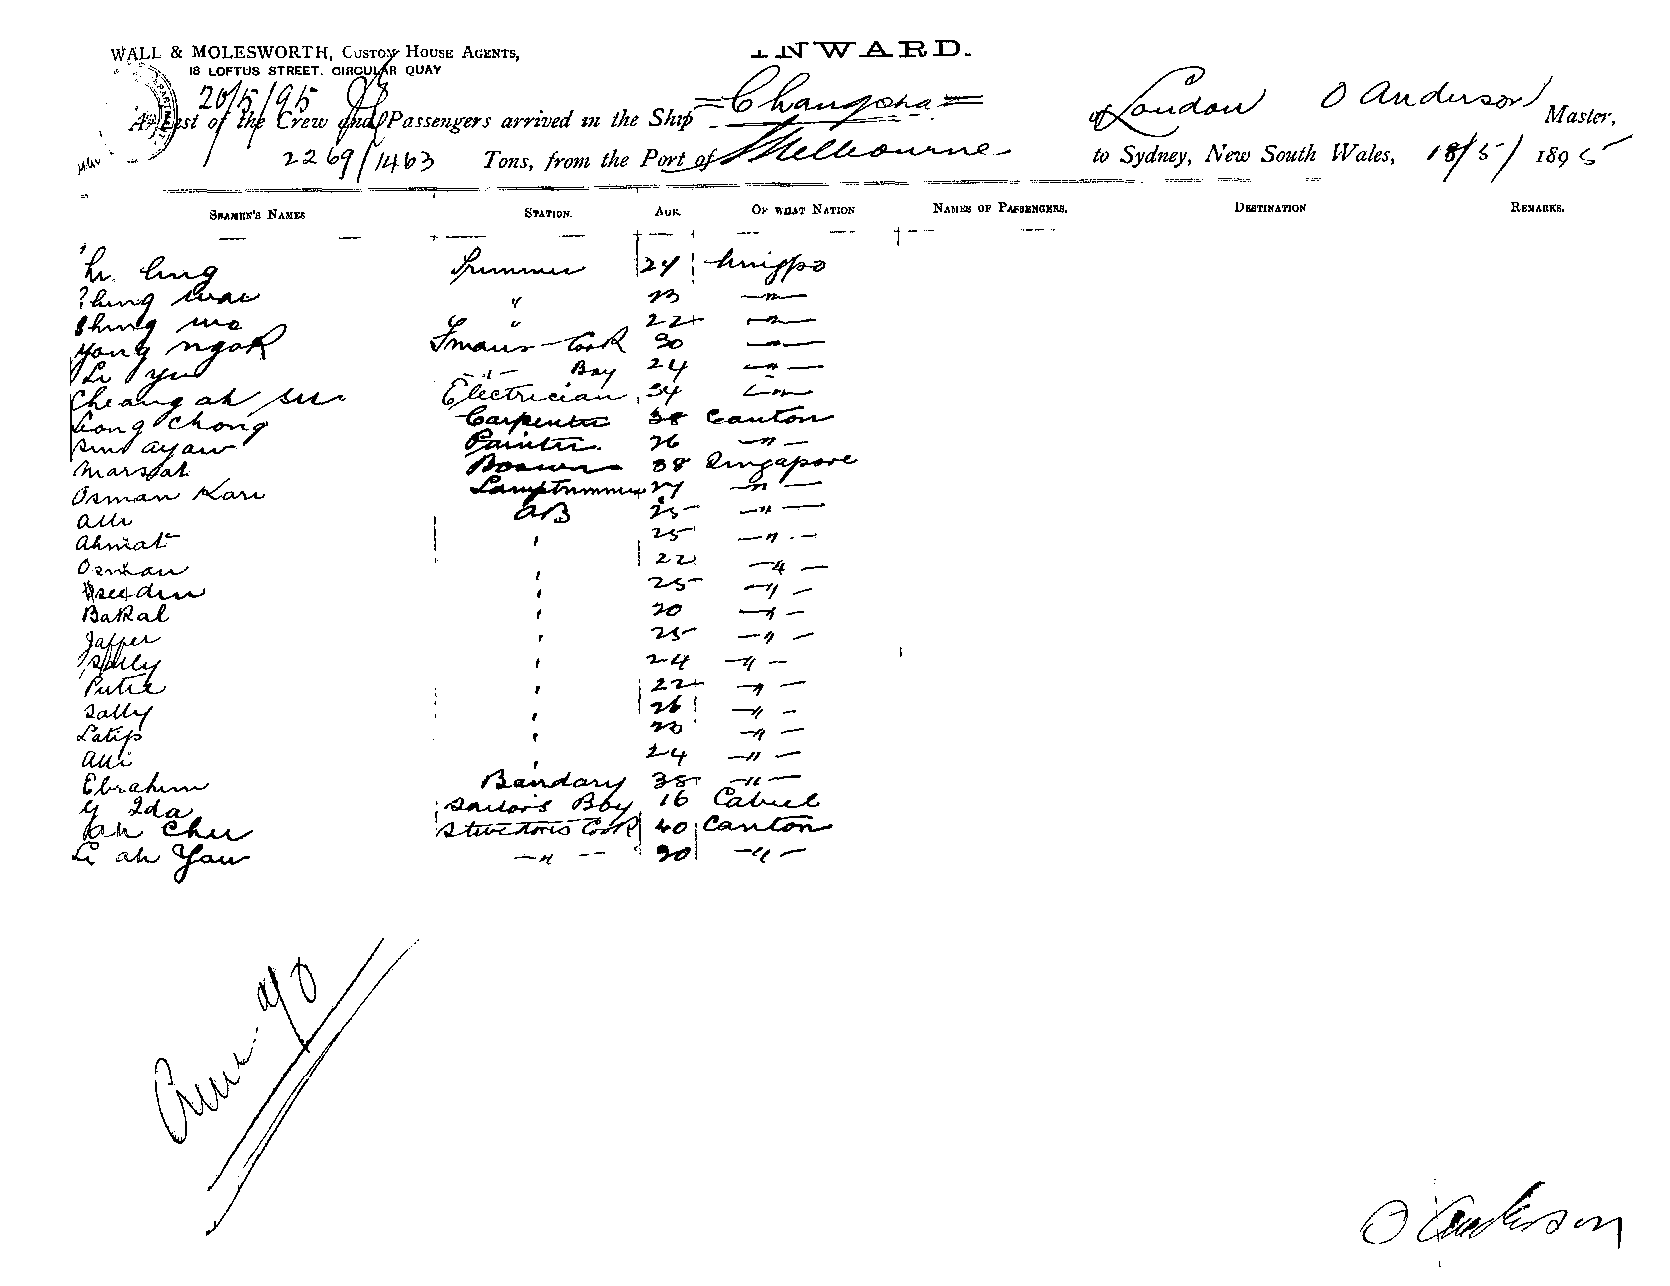 WALL & MOLESWORTH, CUSTOM HOUSE AGENTS, INWARD.
18 LOFTUS STREET. CIRCULAR QUAY
20/5/95
A List of the Crew and Passengers arrived in the Ship Changsha of London O Anderson Master,
2269/1463 Tons, from the Port of Melbourne to Sydney, New South Wales, 18/5/1895
SEAMEN'S NAMES STATION. AGE. OF WHAT NATION NAMES OF PASSENGERS. DESTINATION REMARKS.
ling Trimmer 24 Ningpo
" 23 —"—
Ching " 22 —"—
Yong Ngok Firemans Cook 30 —"—
Li Yu —"— Boy 24 —"—
Cheang ah Electrician 34 —"—
Leong Chong Carpenter 38 Canton
ayaw Painter 26 —"—
Marsat 38 Singapore
Osman Kari Lamptrimmer 27 —"—
Alli AB 25 —"—
Ahmat " 25 —"—
Osman " 22 —"—
" 25 —"—
Bakal " 20 —"—
Jaffer " 25 —"—
" 24 —"—
Putie " 22 —"—
Sally " 26 —"—
Latip " —"—
Alli " 24 —"—
Ebrahim Bandary 38 —"—
Ida Sailors Boy 16
ah Chu Cook 40 Canton
Li ah Yau —"— 30 —"—
O Anderson